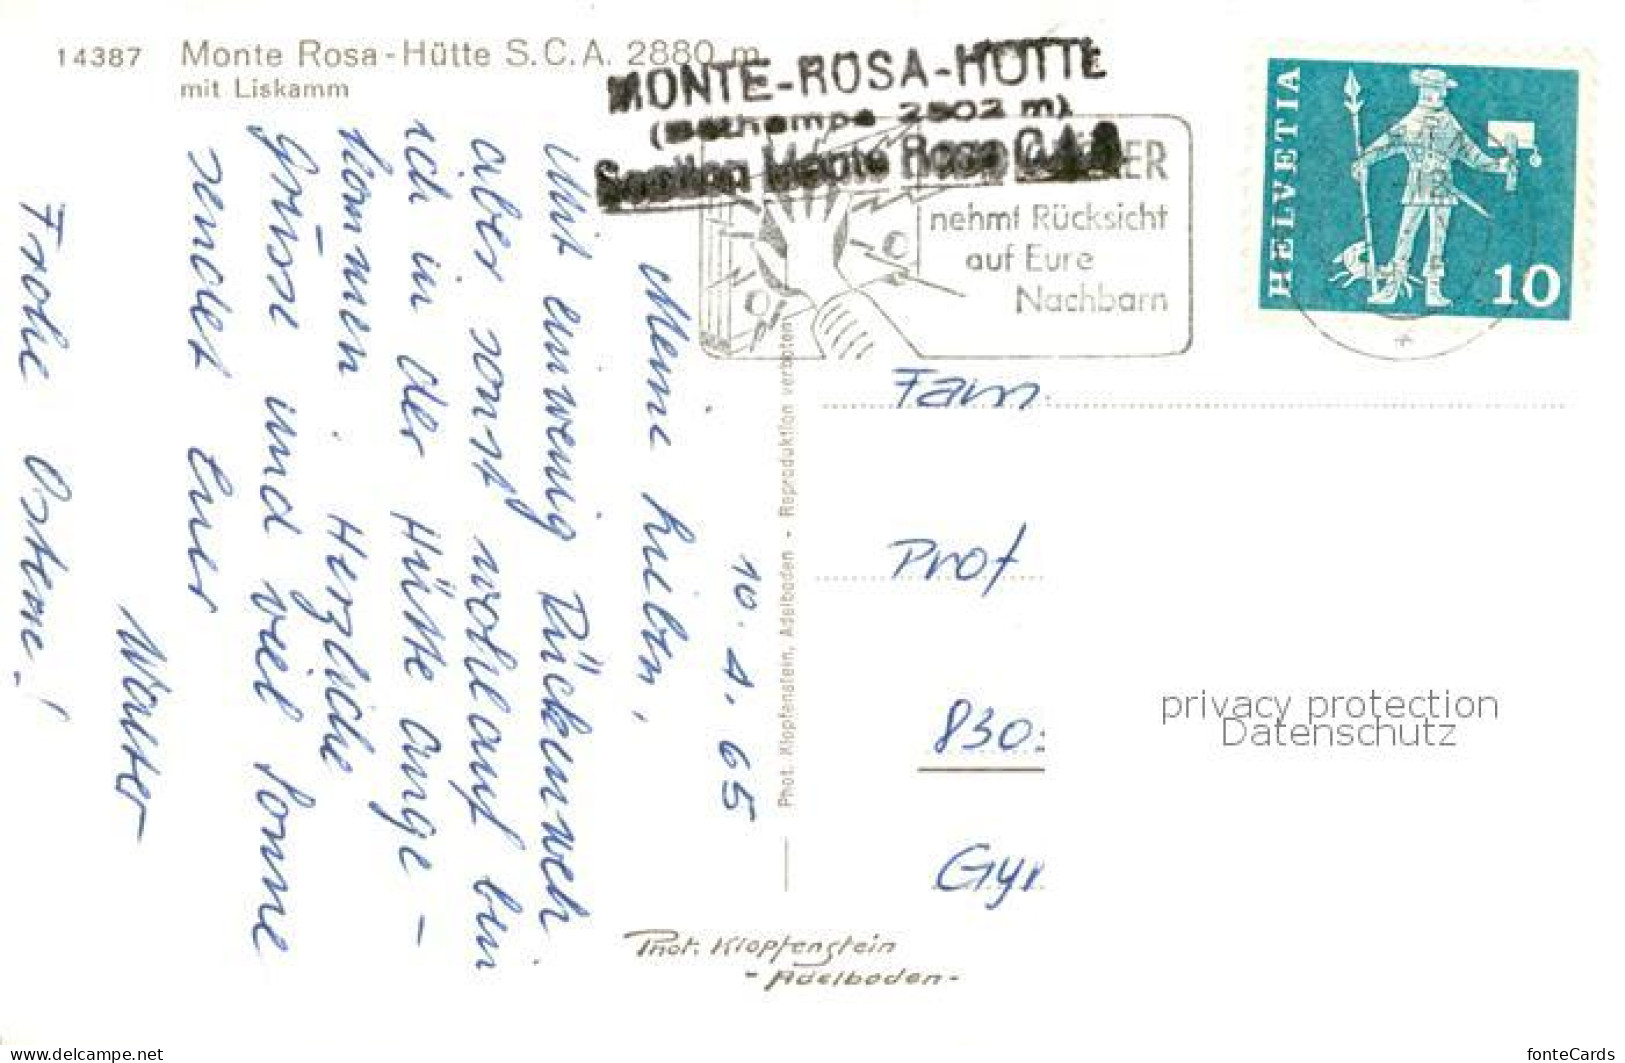 14387 Monte Rosa-Hütte S.C.A. 2880 m
mit Liskamm
MONTE-ROSA-HÜTTE
(Bethemps 2802 m)
Sektion Monte Rosa
nehmt Rücksicht
auf Eure
Nachbarn
HELVETIA
10
10. 4. 65
Meine Lieben,
Mit einwenig Rückenweh
aber sonst wohlauf bin
ich in der Hütte ange-
kommen. Herzliche
Grüsse und viel Sonne
sendet Euer
Walter
Frohe Ostern!
Phot. Klopfenstein, Adelboden - Reproduktion verboten
Fam.
Prof
830
Gyr
privacy protection
Datenschutz
Phot. Klopfenstein
- Adelboden -
www.delcampe.net
fonteCards